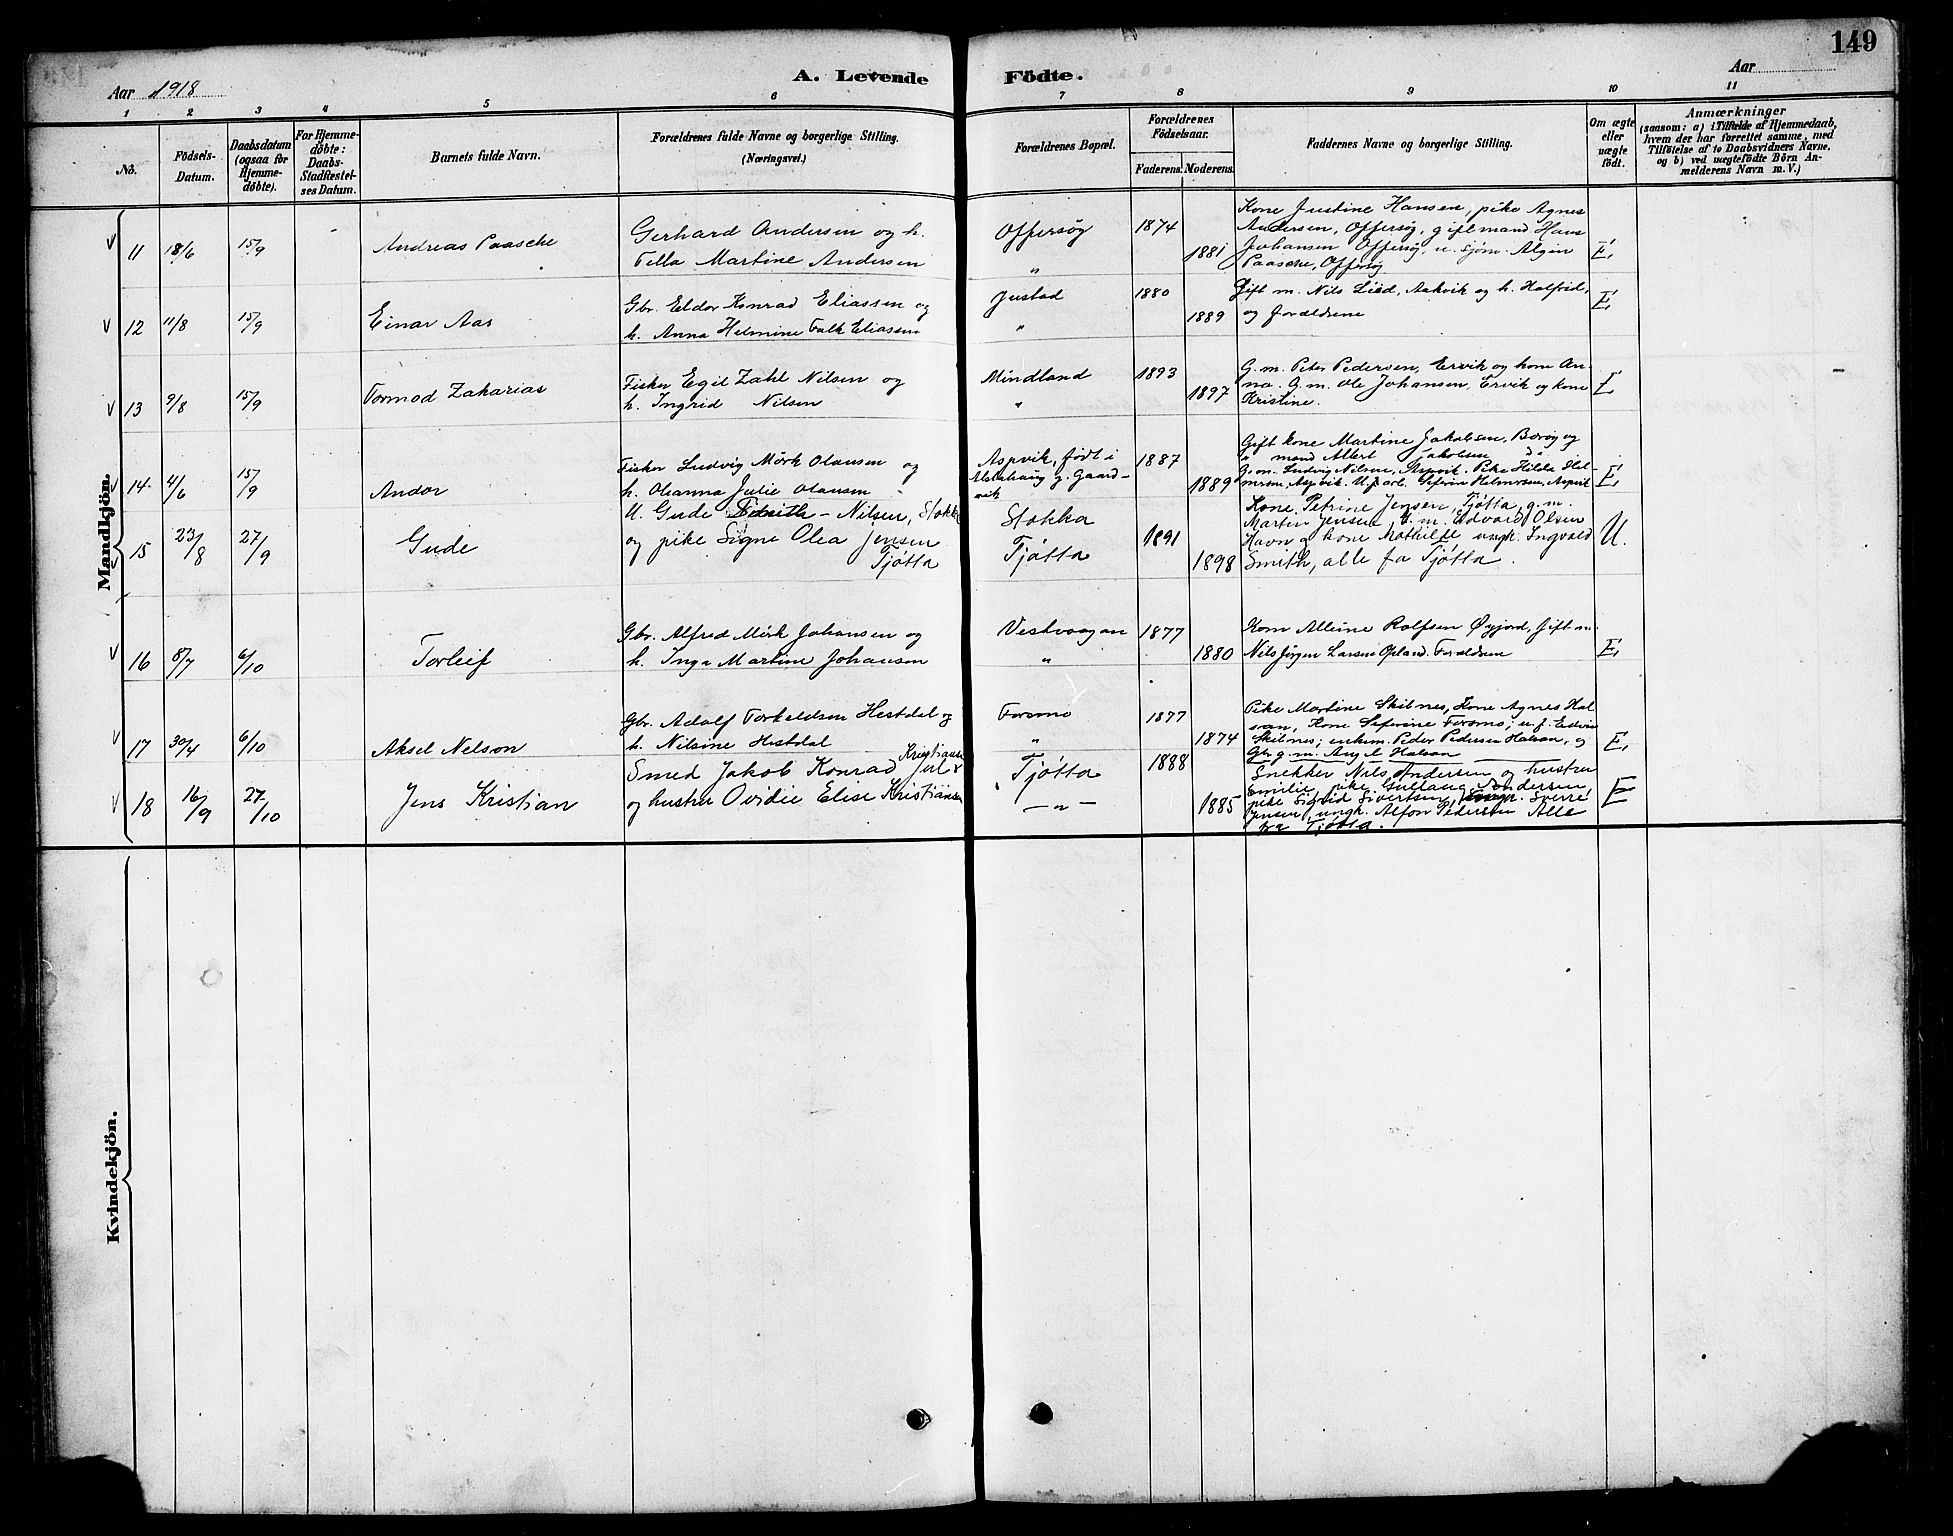 149
A. Levende Födte.
Aar 1918
Aar
1 2 3 4 5 6 7 8 9 10 11
No.
Födsels-Datum.
Daabsdatum (ogsaa for Hjemmedöbte).
For Hjemmedöbte: Daabs-Stadfæstelses Datum.
Barnets fulde Navn.
Forældrenes fulde Navne og borgerlige Stilling. (Næringsvei.)
Forældrenes Bopæl.
Forældrenes Födselsaar.
Faderens. Moderens.
Faddernes Navne og borgerlige Stilling.
Om ægte eller uægte födt.
Anmærkninger
(saasom: a) i Tilfælde af Hjemmedaab, hvem der har forrettet samme, med Tilföielse af to Daabsvidners Navne, og b) ved uægtefödte Börn Anmelderens Navn m. V.)
Mandkjön.
11 18/6 15/9 Andreas Paasche
Gerhard Andersen og h.
Tella Martine Andersen
Offersøy
"
1874
1881
Kone Justine Hansen, pike Agnes
Andersen, Offersøy, gift mand Hans
Johansen Offersøy, u. sjøm. Algin
Paasche, Offersøy
E.
12 11/8 15/9 Einar Aas
Gbr. Eldor Konrad Eliassen og
h. Anna Helmine Falk Eliassen
Justad
"
1880
1889
Gift m. Nils Lied, Aakvik og h. Halfrid,
og forældrene
E.
13 9/8 15/9 Tormod Zakarias
Fisker Egil Zahl Nilsen og
h. Ingrid Nilsen
Mindland
"
1893
1897
G. m. Peter Pedersen, Ervik og kone An-
na. G. m. Ole Johansen, Ervik og kone
Kristine.
E
14 4/6 15/9 Andor
Fisker Ludvig Mörk Olausen og
h. Oleanna Julie Olausen
Aspvik, født i
Alstahaug g. Gaard-
vik
1887
1889
Gift kone Martine Jakobsen, Barøy og
mand Albert Jakobsen
G. m. Ludvig Nilsen, Aspvik. Pike Hilda Hel-
mersen, Aspvik. U. f. arb. Seferin Helmersen, Aspvik
E.
15 23/8 27/9 Gude
U. Gude - Nilsen, Stokka
og pike Signe Olea Jensen
Tjøtta
Stokka
Tjøtta
1891
1898
Kone Petrine Jensen, Tjøtta, g. m.
Martin Jensen, g. m. Edvard Olsen
Havn og kone Mathilde ungk. Ingvald
Smith, alle fra Tjøtta.
U.
16 8/7 6/10 Torleif
Gbr. Alfred Mörk Johansen og
h. Inga Martine Johansen
Vestvaagan
"
1877
1880
Kone Alleine Rolfsen Øyjord, Gift m.
Nils Jørgen Larsen Opland. Forældrene
E.
17 30/4 6/10 Aksel Nelson
Gbr. Adolf Torkeldsen Hestdal og
h. Nilsine Hestdal
Forsmo
"
1877
1874
Pike Martine Skilnes, Kone Agnes Hal
san, Kone Seferine Forsmo; u. f. Edvin
Skilnes; enkem. Peder Pedersen Halsan, og
Gbr. g. m. Angel Halsan
E.
18 16/9 27/10 Jens Kristian
Smed Jakob Konrad Kristiansen
og hustru Ovidie Elise Kristiansen
Tjøtta
- " -
1888
1885
Snekker Nils Andersen og hustru
Emilie, pike Gullaug Andersen,
pike Sigrid Sivertsen, ungk. Sverre
Jensen, ungk. Alfon Pedersen Alle
fra Tjøtta.
E
Kvindekjön.